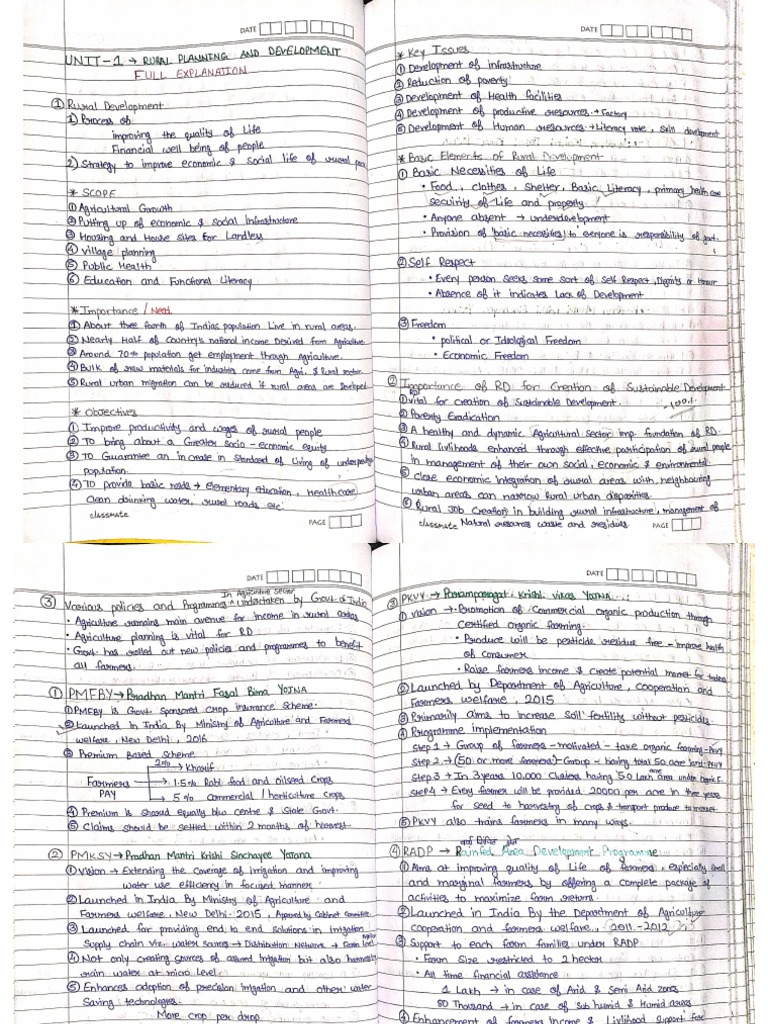 DATE
UNIT-1 → RURAL PLANNING AND DEVELOPMENT
FULL EXPLANATION
① Rural Development
1) Process of
improving the quality of Life
Financial well being of people
2) Strategy to improve economic & social life of rural poor
* SCOPE
① Agricultural Growth
② Putting up of economic & social Infrastructure
③ Housing and House sites for Landless
④ village planning
⑤ Public Health
⑥ Education and Functional Literacy
* Importance / Need
① About three fourth of Indias population Live in rural areas.
② Nearly Half of Country's national income Desired from Agriculture
③ Around 70% population get employment through Agriculture.
④ Bulk of raw materials for industries come from Agri. & Rural sector
⑤ Rural urban migration can be reduced if rural areas are Developed
* Objectives
① Improve productivity and wages of rural people
② To bring about a Greater socio-economic equity
③ To Guarantee an increase in Standard of Living of
population.
④ To provide basic needs → elementary education, healthcare
Clean drinning water, rural roads etc.
classmate
PAGE
DATE
* Key Issues
① Development of infrastructure
② Reduction of poverty
③ Development of Health facilities
④ Development of productive resources → Factory
⑤ Development of Human resources → Literacy rate, skill development
* Basic Elements of Rural Development
① Basic Necessities of Life
• Food, clothes, Shelter, Basic Literacy, primary health care
security of Life and property
• Anyone absent → underdevelopment
• Provision of 'basic necessities' to everyone is responsibility of govt.
② Self Respect
• Every person seeks some sort of Self Respect, Dignity or Honour
• Absence of it indicates Lack of Development
③ Freedom
• political or Idological Freedom
• Economic Freedom
② Importance of RD for Creation of Sustainable Development
① RD vital for creation of Sustainable Development. -100%
② Poverty Eradication
③ A healthy and dynamic Agricultural sector imp foundation of RD.
④ Rural livlihoods enhanced through effective participation of rural people
in management of their own social, economic & environmental
⑤ close economic integration of rural areas with neighbouring
urban areas can narrow Rural urban disparities.
⑥ Rural Job Creation in building rural infrastructure, management of
classmate Natural resources waste and residues
PAGE
DATE
③ Various policies and Programmes In Agriculture sector undertaken by Govt. of India
• Agriculture remains main avenue for income in rural areas
• Agriculture planning is vital for RD
• Govt has rolled out new policies and programmes to benefit
all farmers.
① PMFBY → Pradhan Mantri Fasal Bima Yojna
① PMFBY is Govt Sponsored crop insurance Scheme.
② Launched in India By Ministry of Agriculture and Farmers
welfare, New Delhi, 2016
③ Premium Based Scheme
Farmers PAY
2% → Kharif
→ 1.5% Rabi food and oilseed crops
→ 5% commercial / horticulture crops
④ Premium is shared equally b/w centre & State Govt.
⑤ Claims should be settled within 2 months of harvest.
② PMKSY → Pradhan Mantri Krishi Sinchayee Yojana
① Vision → Extending the coverage of irrigation and improving
water use efficiency in focused manner
② Launched in India By Ministry of Agriculture and
Farmers welfare, New Delhi. 2015, Approved by Cabinet Committee
③ Launched for providing end to end solutions in irrigation
Supply chain viz. water sources → Distribution Network → Farm level
④ Not only creating sources of assured irrigation but also harness
rain water at micro Level.
⑤ Enhances adoption of precision irrigation and other water
Saving technologies.
More crop per drop
DATE
③ PKVY → Paramparagat Krishi vikas Yojna
① vision → • Promotion of Commercial organic production through
Certified organic farming.
• Produce will be pesticide residue free - improve health
of consumer
• Raise farmers income & create potential market for
② Launched by Department of Agriculture, cooperation and
Farmers welfare, 2015
③ Primarily aims to increase Soil fertility without pesticides
④ Programme implementation
Step 1 → Group of farmers - motivated - take organic farming - PKVY
Step 2. → (50 or more farmers) - Group - having total 50 acre land - PKVY
Step 3 → In 3 years 10,000 Clusters having 50 Lakh area under organic F.
Step 4 → Every farmer will be provided 20000 per acre in three years
for seed to harvesting of crops & transport produce to market
⑤ PKVY also trains farmers in many ways.
④ RADP → Rainfed Area Development Programme
① Aims at improving quality of Life of farmers, especially small
and marginal farmers by offering a complete package of
activities to maximize farm returns.
② Launched in India By the Department of Agriculture
cooperation and farmers welfare, 2011-2012
③ Support to each farm families under RADP
• Farm Size restricted to 2 hectar
• All time financial assistance
1 Lakh → in case of Arid & Semi Arid zones
80 Thousand → in case of Sub humid & Humid areas
④ Enhancement of farmers Income & Livlihood Support for